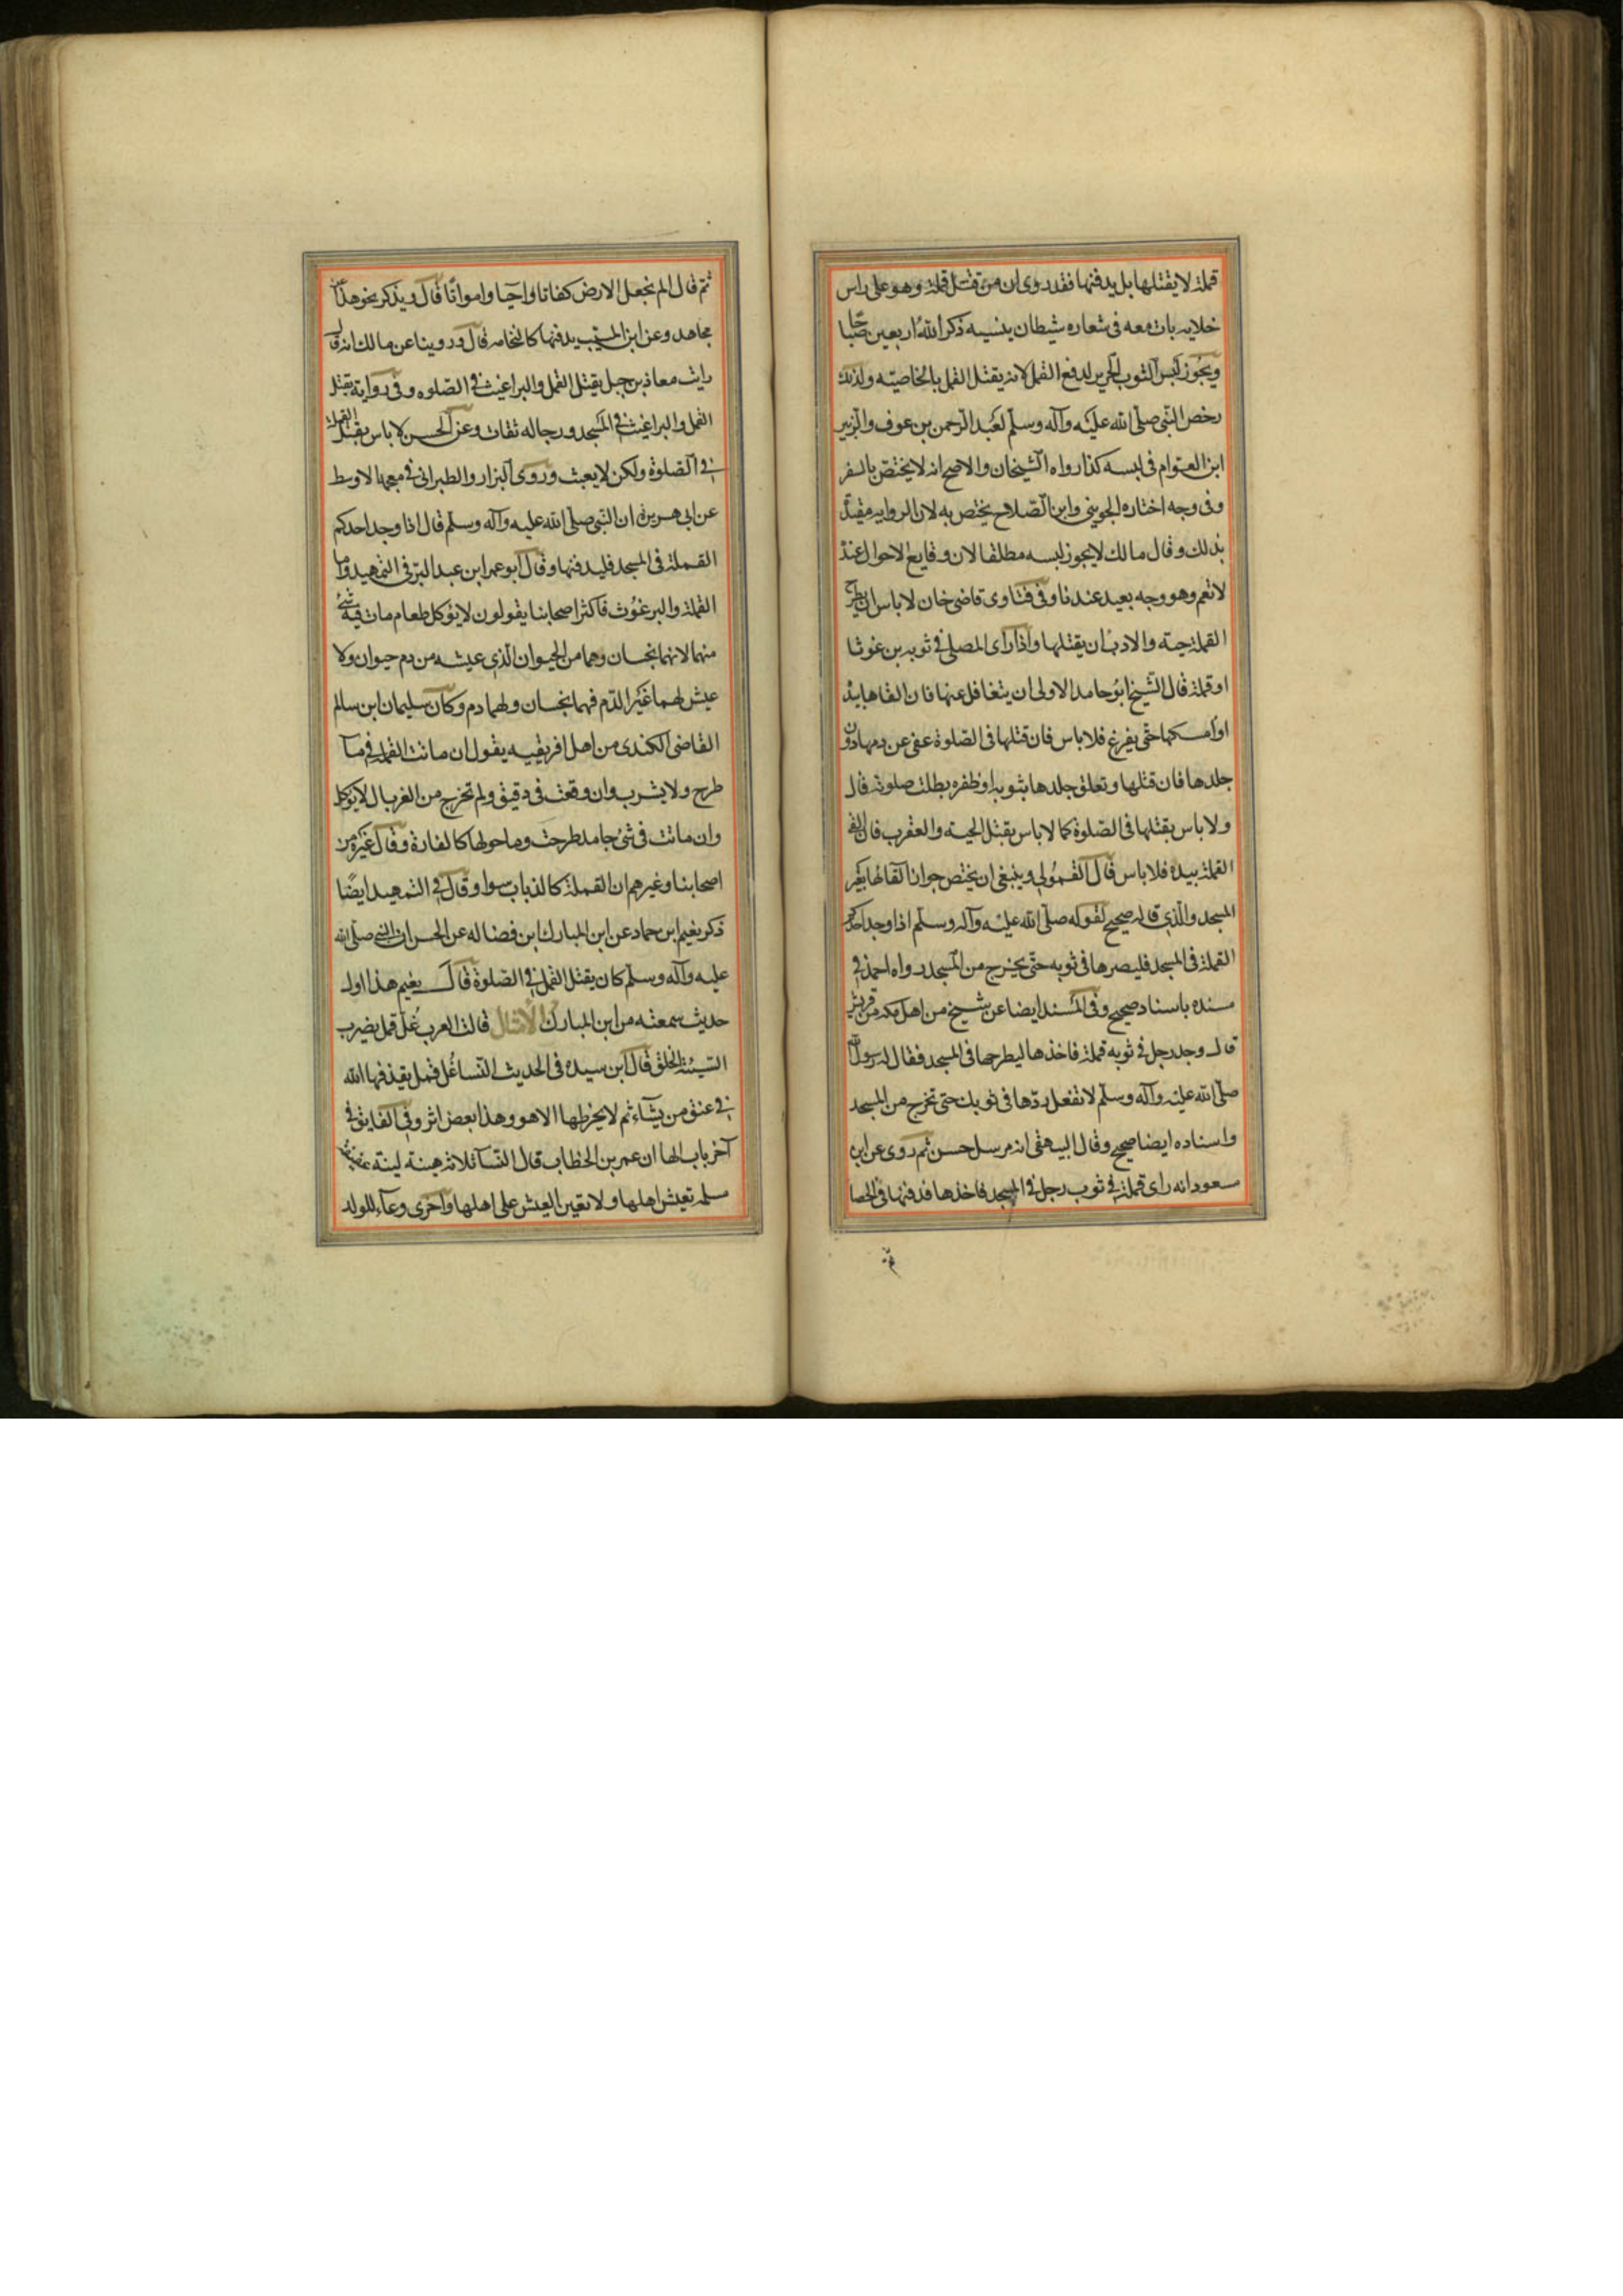 قملة لا يقتلها بل يدفنها فقد روى ان من قتل قملة وهو على راس
خلائه بات معه فى شعاره شيطان ينسيه ذكر الله اربعين صباحا
ويجوز لبس الثوب الحرير لدفع القمل لانه يقتل القمل بالخاصيته ولذلك
رخص النبى صلى الله عليه وآله وسلم لعبد الرحمن بن عوف والزبير
ابن العوام فى لبسه كذا رواه الشيخان والاصح انه لا يختص بالسفر
وفى وجه اختاره الجوينى وابن الصلاح يختص به لان الرواية مقيدة
بذلك وقال مالك لا يجوز لبسه مطلقا لان وقايع الاحوال عنده
لا تعم وهو وجه بعيد عندنا وفى فتاوى قاضى خان لا باس ان يطرح
القملة حية والادب ان يقتلها واذا راى المصلى فى ثوبه برغوثا
او قملة قال الشيخ ابو حامد الاولى ان يتغافل عنها فان القاها بيده
او امسكها حتى يفرغ فلا باس فان قتلها فى الصلوة عفى عن دمها دون
جلدها فان قتلها وتعلق جلدها بثوبه او ظفره بطلت صلوته قال
ولا باس بقتلها فى الصلوة كما لا باس بقتل الحية والعقرب فان القى
القملة بيده فلا باس قال القمولى وينبغى ان يختص جواز القائها بغير
المسجد والذى قاله صحيح لقوله صلى الله عليه وآله وسلم اذا وجد احدكم
القملة فى المسجد فليصرها فى ثوبه حتى يخرج من المسجد رواه احمد فى
مسنده باسناد صحيح وفى المسند ايضا عن شيخ من اهل مكه من قريش
قال وجد رجل فى ثوبه قملة فاخذها ليطرحها فى المسجد فقال له رسول الله
صلى الله عليه وآله وسلم لا تفعل ردها فى ثوبك حتى تخرج من المسجد
واسناده ايضا صحيح وقال البيهقى انه مرسل حسن ثم روى عن ابن
مسعود انه راى قملة فى ثوب رجل فى المسجد فاخذها فدفنها فى الحصا
ثم
ثم قال الم نجعل الارض كفاتا واحيا وامواتا قال ويذكر نحو هذا عن
مجاهد وعن ابن المسيب يدفنها كالنخامه قال وروينا عن مالك انه قال
رايت معاذ بن جبل يقتل القمل والبراغيث فى الصلوه وفى رواية يقتل
القمل والبراغيث فى المسجد ورجاله ثقات وعن الحسن لا باس بقتل القملة
فى الصلوة ولكن لا يعبث وروى البزار والطبرانى فى معجمه الاوسط
عن ابى هريرة ان النبى صلى الله عليه وآله وسلم قال اذا وجد احدكم
القملة فى المسجد فليدفنها وقال ابو عمر ابن عبد البر فى التمهيد واما
القملة والبرغوث فاكثر اصحابنا يقولون لا يؤكل طعام مات فيه شئ
منهما لانهما نجسان وهما من الحيوان الذى عيشه من دم حيوان ولا
عيش لهما غير الدم فهما نجسان ولهما دم وكان سليمان ابن سالم
القاضى الكندى من اهل افريقيه يقول ان ماتت القملة فى مآ
طرح ولا يشرب وان وقعت فى دقيق ولم تخرج من الغربال لا يؤكل
وان ماتت فى شئ جامد طرحت وما حولها كالفارة وقال غيره من
اصحابنا وغيرهم ان القملة كالذباب سوا وقال فى التمهيد ايضا
ذكر نعيم ابن حماد عن ابن المبارك ابن فضاله عن الحسن ان النبى صلى الله
عليه وآله وسلم كان يقتل القمل فى الصلوة قال نعيم هذا اول
حديث سمعته من ابن المبارك الامثال قالت العرب غل قمل يضرب
السيئة الخلق قال ابن سيده فى الحديث النسا غل قمل يقذفها الله
فى عنق من يشآء ثم لا يخرطها الا هو وهذا بعض اثر وفى الفايق فى
آخر باب الها ان عمر بن الخطاب قال النسآ ثلاثة هينة لينة عفيفة
مسلمة تعيش اهلها ولا تعين العيش على اهلها واخرى وعآء للولد